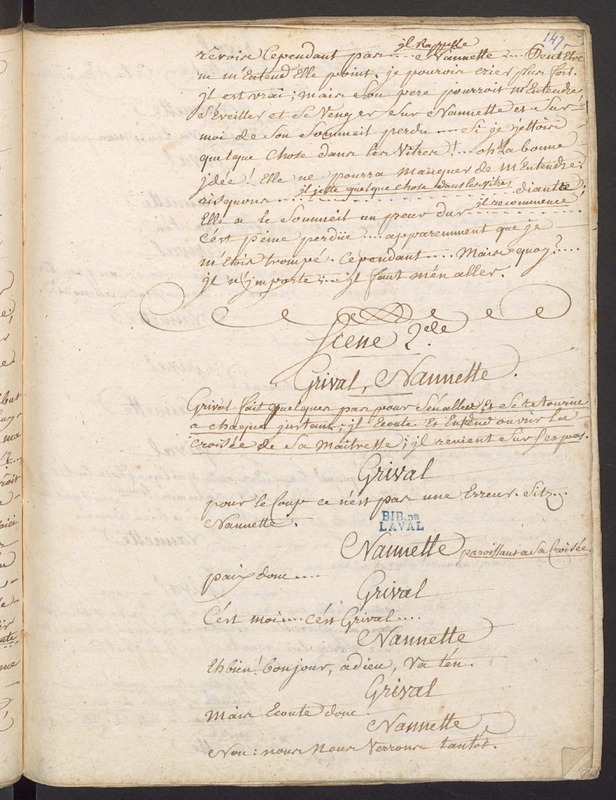 147
revoir Cependant pas.... il Rappelle Nannette .... Peut Etre
ne m'Entend Elle point; je pourois crier plus fort.
jl est vrai; mais Son pere pourroit m'Entendre
S'éveiller et Se Venger Sur Nannette et Sur
moi de Son Sommeil perdu .... Si je jettois
quelque Chose dans les Vitres! .... oh! la bonne
jdée! Elle ne pourra Manquer de m'Entendre.
risquons .... jl jette quelque chose dans les vitres .... diantre
Elle a le Sommeil un peu dur .... jl recommence
C'est peine perdüe .... apparemment que je
m'étois trompé. Cependant .... Mais quoy? ....
jl n'jmporte .... jl faut m'en aller.
Scene 2.de
Grival, Nannette.
Grival fait quelques pas pour S'en aller Et Se retourne
a chaque jnstant; jl Ecoute Et Entend ouvrir la
Croisée de Sa Maitresse; jl revient Sur Ses pas.
Grival
pour le Coup ce n'est pas une Erreur. Sitz...
Nannette.
BIB. DE
LAVAL
Nannette paroissant a Sa Croisée
paix donc ....
Grival
C'est moi... C'est Grival ....
Nannette
Eh bien! bonjour, adieu, Va t'en.
Grival
Mais Ecoute donc
Nannette
Non: nous Nous Verrons tantot.